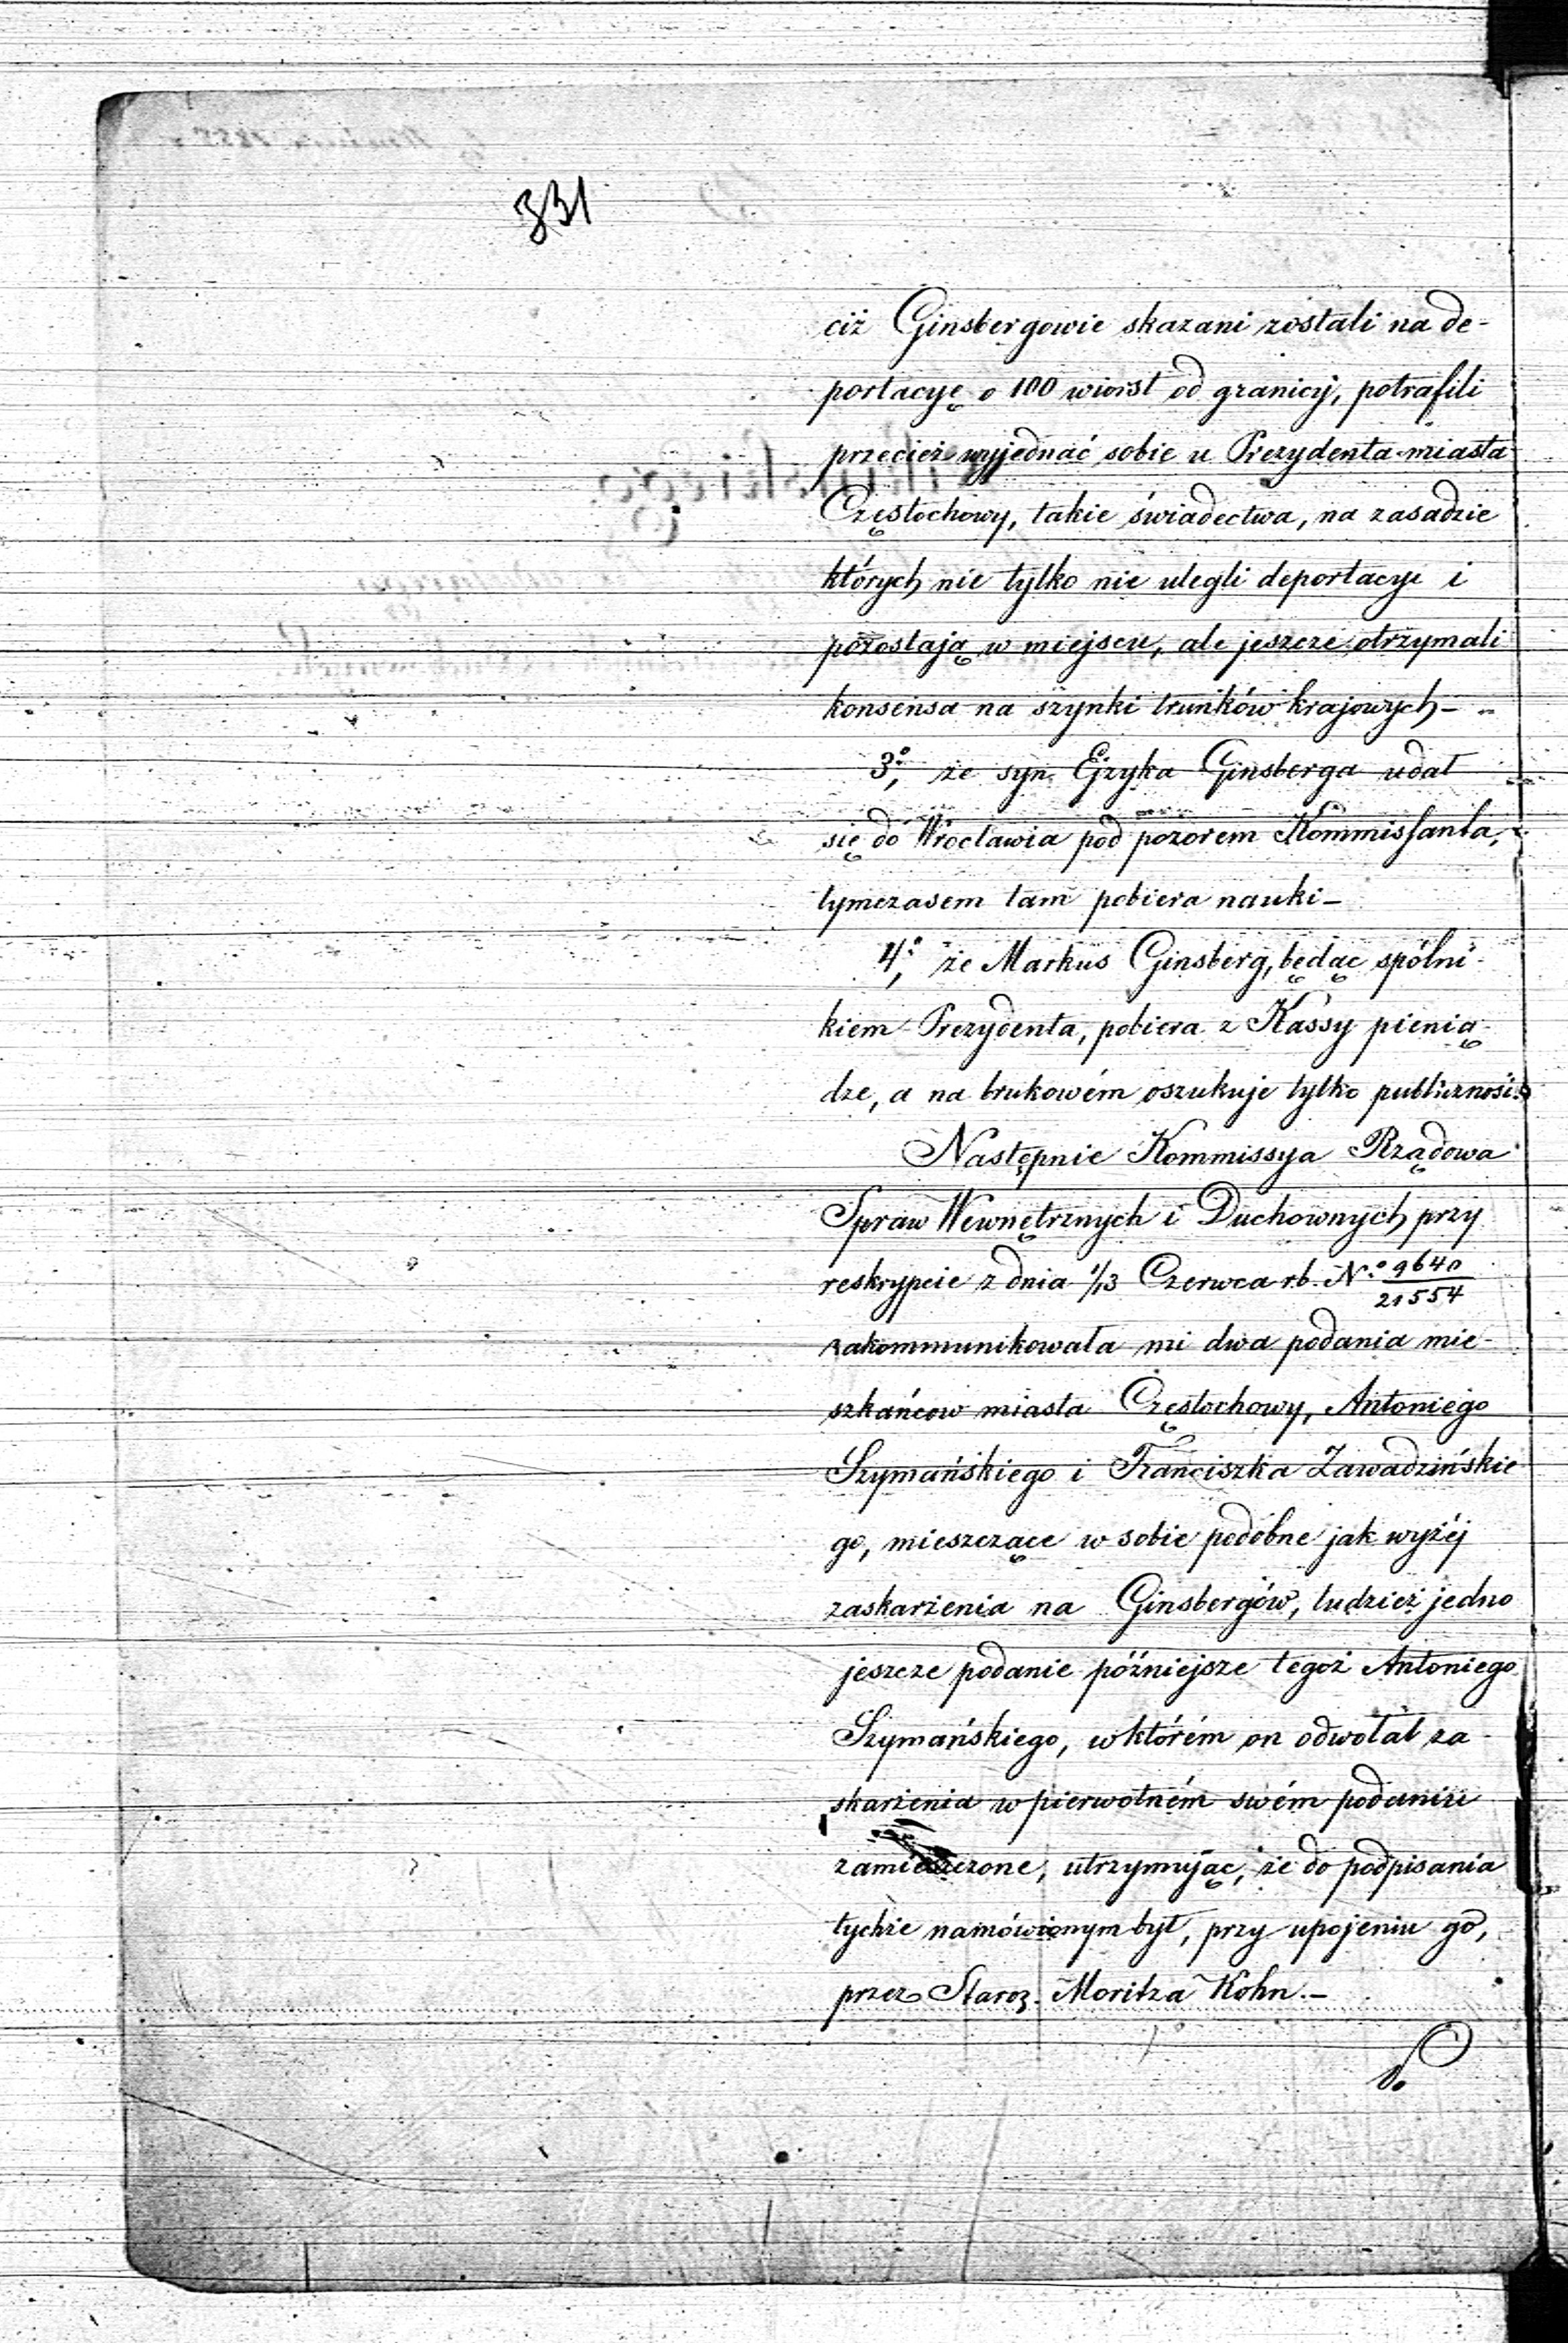 331
ciż Ginsbergowie skazani zostali na de-
portacyę o 100 wiorst od granicy, potrafili
przecież wyjednać sobie u Prezydenta miasta
Częstochowy, takie świadectwa, na zasadzie
których nie tylko nie ulegli deportacyi i
pozostają w miejscu, ale jeszcze otrzymali
konsensa na szynki trunków krajowych –
3o, że syn Ejzyka Ginsberga udał
się do Wrocławia pod pozorem Kommissanta,
tymczasem tam pobiera nauki –
4o, że Markus Ginsberg, będąc spólni-
kiem Prezydenta, pobiera z Kassy pienią-
dze, a na brukowém oszukuje tylko publiczność.
Następnie Kommissya Rządowa
Spraw Wewnętrznych i Duchownych przy
reskrypcie z dnia 1/13 Czerwca r.b. No 9640/21554
zakommunikowała mi dwa podania mie-
szkańców miasta Częstochowy, Antoniego
Szymańskiego i Franciszka Zawadzińskie
go, mieszczące w sobie podobne jak wyżéj
zaskarżenia na Ginsbergów, tudzież jedno
jeszcze podanie późniejsze tegoż Antoniego
Szymańskiego, w którém on odwołał za-
skarżenia w pierwotném swém podaniu
zamieszczone, utrzymując, że do podpisania
tychże namówionym był, przy upojeniu go,
przez Staroz. Moritza Kohn. –